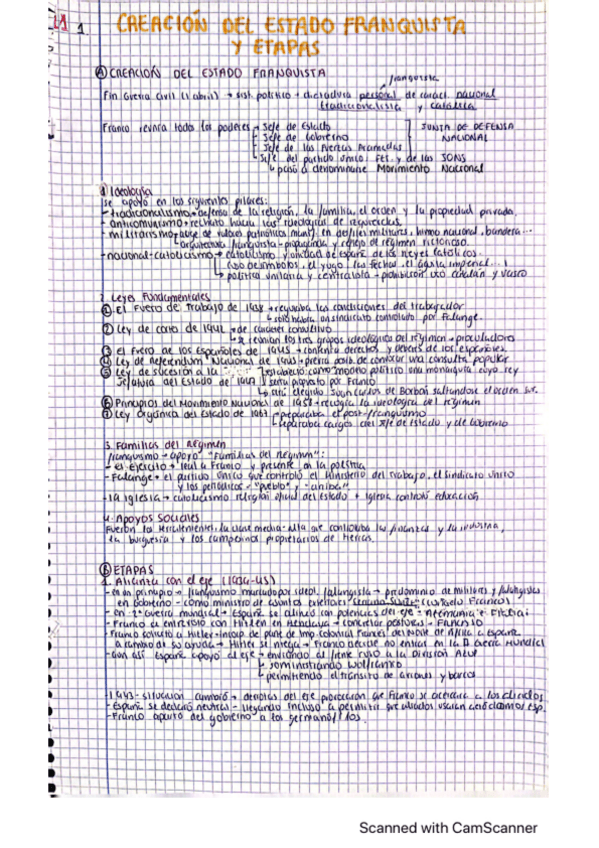 1
CREACIÓN DEL ESTADO FRANQUISTA
Y ETAPAS
A CREACIÓN DEL ESTADO FRANQUISTA
franquista
Fin Guerra Civil (1 abril) → sist. político → dictadura personal de caract. nacional
tradicionalista y católica
Franco reunía todos los poderes → Jefe de Estado
→ Jefe de Gobierno
→ Jefe de las Fuerzas Armadas
→ Jefe del partido único: FET y de las JONS
JUNTA DE DEFENSA
NACIONAL
↳ pasó a denominarse Movimiento Nacional
1. Ideología
Se apoyó en los siguientes pilares:
- tradicionalismo → defensa de la religión, la familia, el orden y la propiedad privada.
- anticomunismo → rechazo hacia las ideologías de izquierdas.
- militarismo → de valores patrióticos en desfiles militares, himno nacional, bandera...
↳ arquitectura franquista → propaganda y reflejo del régimen victorioso.
- nacional-catolicismo → catolicismo y unidad de España de los Reyes Católicos.
(uso de símbolos, el yugo, las flechas, el águila imperial...)
↳ política unitaria y centralista → prohibición uso catalán y vasco
2. Leyes Fundamentales
① El Fuero de Trabajo de 1938 → regulaba las condiciones del trabajador
↳ solo había un sindicato controlado por Falange.
② Ley de Corte de 1942 → de carácter consultivo
↳ se reunían los tres grupos ideológicos del régimen → procuradores
③ El Fuero de los Españoles de 1945 → contenía derechos y deberes de los españoles.
④ Ley de Referéndum Nacional de 1945 → preveía posib. de convocar una consulta popular
⑤ Ley de sucesión a la
Jefatura del Estado de 1947
establecía como modelo político una monarquía cuyo rey
sería propuesto por Franco
↳ elegido Juan Carlos de Borbón saltándose el orden suc.
⑥ Principios del Movimiento Nacional de 1958 → recogía la ideología del régimen
⑦ Ley orgánica del Estado de 1967 → preparaba el post-franquismo
↳ separaba cargos del Jefe de Estado y de Gobierno
3. Familias del Régimen
franquismo → apoyo "familias del régimen":
- el Ejército → leal a Franco y presente en la política
- Falange → el partido único que controló el Ministerio del Trabajo, el sindicato único
y los periódicos → "Pueblo" y "Arriba"
- la Iglesia → catolicismo religión oficial del estado → Iglesia controló educación
4. Apoyos sociales
Fueron los terratenientes, la clase media-alta que controlaba las finanzas y la industria,
la burguesía y los campesinos propietarios de tierras.
B ETAPAS
1. Alianza con el eje (1939-45)
- en un principio → franquismo marcado por ideol. falangista → predominio de militares y falangistas
en Gobierno - como ministro de asuntos exteriores Serrano Suñer (cuñado Franco)
- en 2ª Guerra mundial → España se alineó con potencias del eje = Alemania e Italia
- Franco se entrevistó con Hitler en Hendaya → concretar posturas - FRACASO
- Franco solicitó a Hitler → de parte de Imp. colonial francés del Norte de África a España
a cambio de su ayuda → Hitler se niega → Franco decide no entrar en la II Guerra Mundial
- Aun así España apoyó al eje → enviando al frente ruso a la División Azul
↳ suministrando wolframio
↳ permitiendo el tránsito de aviones y barcos
- 1943 - situación cambió → derrotas del eje provocaron que Franco se acercara a los aliados
- España se declaró neutral - llegando incluso a permitir que aliados usaran aeródromos esp.
- Franco apartó del gobierno a los germanófilos.
Scanned with CamScanner